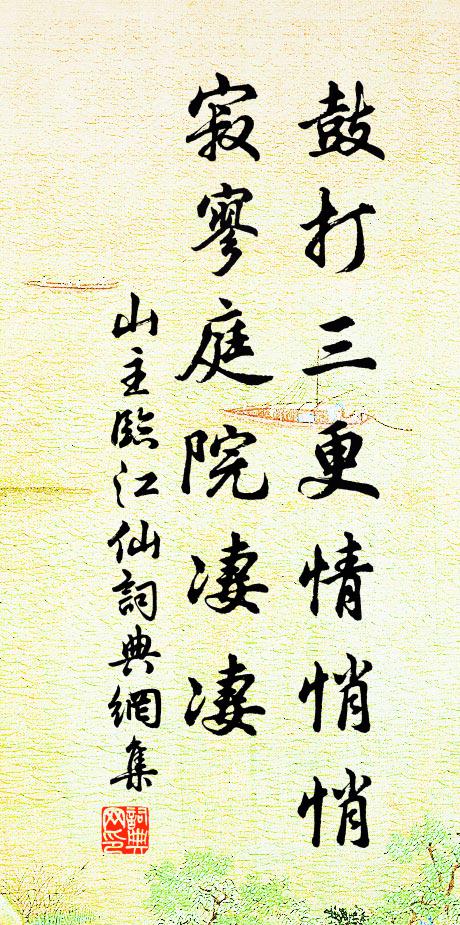 鼓打三更情悄悄
寂寥庭院凄凄
山主臨江仙詞典網集
詞典网印